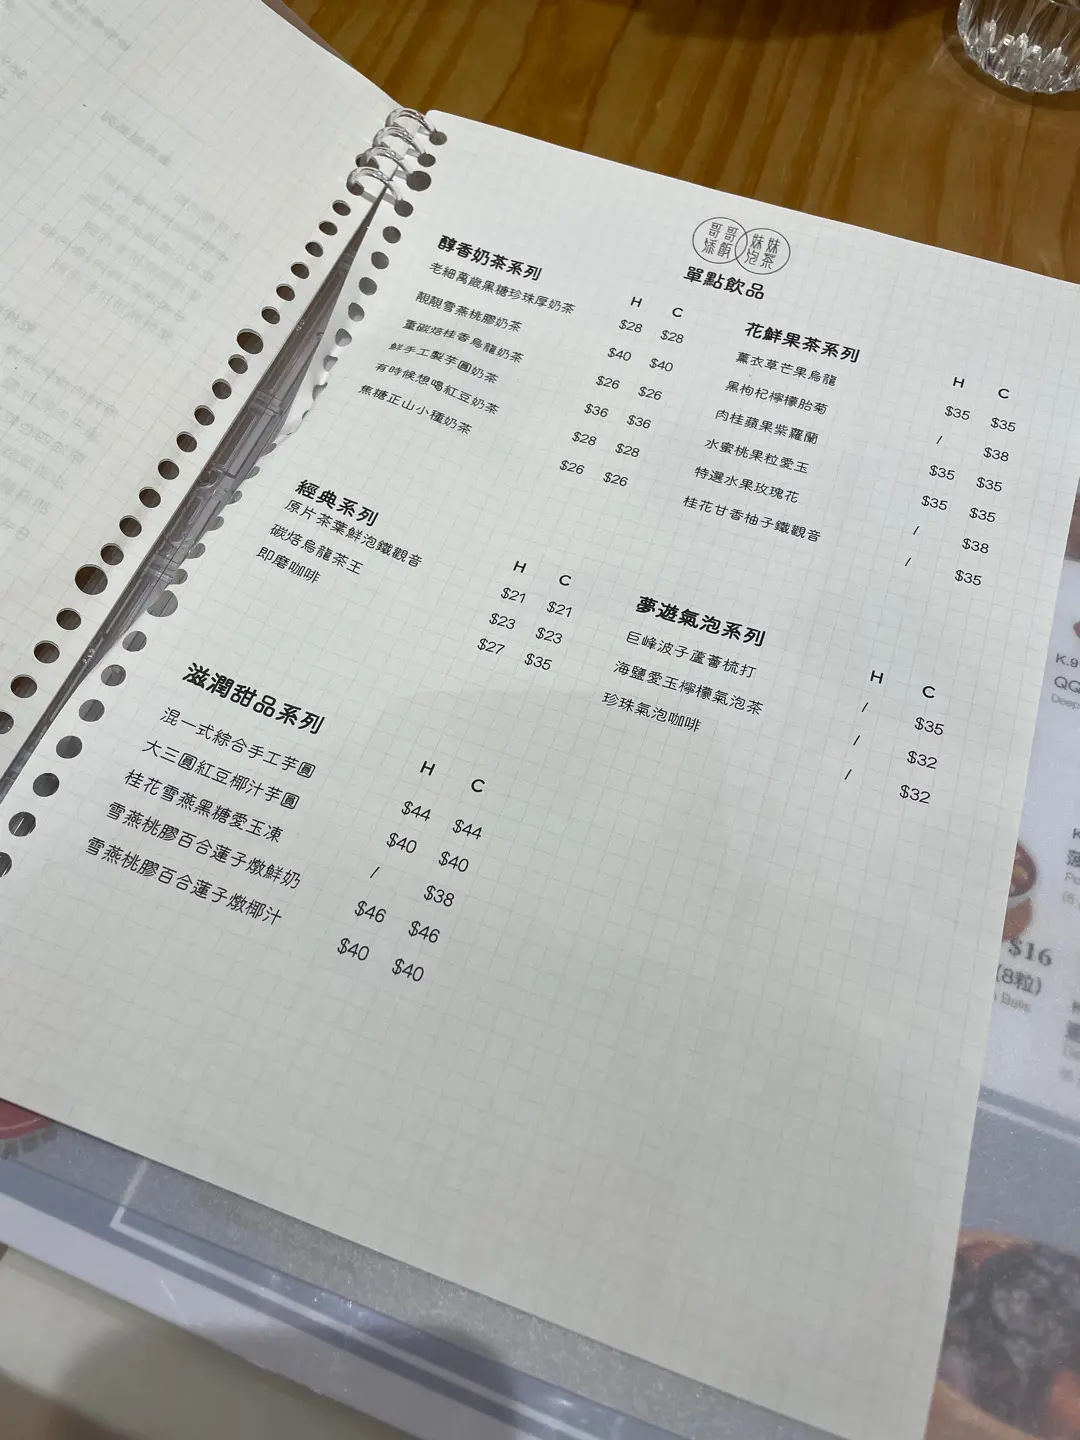 哥哥 妹妹
添飯 泡茶
單點飲品
醇香奶茶系列
H C
老細萬歲黑糖珍珠厚奶茶 $28 $28
靚靚雪燕桃膠奶茶 $40 $40
重碳焙桂香烏龍奶茶 $26 $26
鮮手工製芋圓奶茶 $36 $36
有時候想喝紅豆奶茶 $28 $28
焦糖正山小種奶茶 $26 $26
經典系列
H C
原片茶葉鮮泡鐵觀音 $21 $21
碳焙烏龍茶王 $23 $23
即磨咖啡 $27 $35
滋潤甜品系列
H C
混一式綜合手工芋圓 $44 $44
大三圓紅豆椰汁芋圓 $40 $40
桂花雪燕黑糖愛玉凍 / $38
雪燕桃膠百合蓮子燉鮮奶 $46 $46
雪燕桃膠百合蓮子燉椰汁 $40 $40
花鮮果茶系列
H C
薰衣草芒果烏龍 $35 $35
黑枸杞檸檬胎菊 / $38
肉桂蘋果紫蘿蘭 $35 $35
水蜜桃果粒愛玉 $35 $35
特選水果玫瑰花 / $38
桂花甘香柚子鐵觀音 / $35
夢遊氣泡系列
H C
巨峰波子蘆薈梳打 / $35
海鹽愛玉檸檬氣泡茶 / $32
珍珠氣泡咖啡 / $32
K.9
QQ
Deep
$16
(8粒)